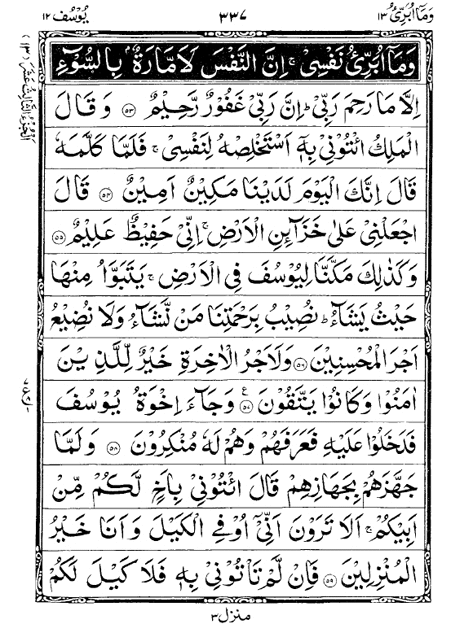 وَمَا اُبَرِّئُ ١٣ ٣٣٧ يُوْسُف ١٢
وَمَا اُبَرِّئُ نَفْسِیْ ۚ اِنَّ النَّفْسَ لَاَمَّارَةٌۢ بِالسُّوْٓءِ
اِلَّا مَا رَحِمَ رَبِّیْ ؕ اِنَّ رَبِّیْ غَفُوْرٌ رَّحِیْمٌ ﴿۵۳﴾ وَقَالَ
الْمَلِكُ ائْتُوْنِیْ بِهٖۤ اَسْتَخْلِصْهُ لِنَفْسِیْ ۚ فَلَمَّا كَلَّمَهٗ
قَالَ اِنَّكَ الْیَوْمَ لَدَیْنَا مَكِیْنٌ اَمِیْنٌ ﴿۵۴﴾ قَالَ
اجْعَلْنِیْ عَلٰی خَزَآئِنِ الْاَرْضِ ۚ اِنِّیْ حَفِیْظٌ عَلِیْمٌ ﴿۵۵﴾
وَكَذٰلِكَ مَكَّنَّا لِیُوْسُفَ فِی الْاَرْضِ ۚ یَتَبَوَّاُ مِنْهَا
حَیْثُ یَشَآءُ ؕ نُصِیْبُ بِرَحْمَتِنَا مَنْ نَّشَآءُ وَلَا نُضِیْعُ
اَجْرَ الْمُحْسِنِیْنَ ﴿۵۶﴾ وَلَاَجْرُ الْاٰخِرَةِ خَیْرٌ لِّلَّذِیْنَ
اٰمَنُوْا وَكَانُوْا یَتَّقُوْنَ ﴿۵۷﴾ ع وَجَآءَ اِخْوَةُ یُوْسُفَ
فَدَخَلُوْا عَلَیْهِ فَعَرَفَهُمْ وَهُمْ لَهٗ مُنْكِرُوْنَ ﴿۵۸﴾ وَلَمَّا
جَهَّزَهُمْ بِجَهَازِهِمْ قَالَ ائْتُوْنِیْ بِاَخٍ لَّكُمْ مِّنْ
اَبِیْكُمْ ۚ اَلَا تَرَوْنَ اَنِّیْۤ اُوْفِی الْكَیْلَ وَاَنَا خَیْرُ
الْمُنْزِلِیْنَ ﴿۵۹﴾ فَاِنْ لَّمْ تَاْتُوْنِیْ بِهٖ فَلَا كَیْلَ لَكُمْ
منزل ٣
اَلْجُزْءُ الثَّالِثُ عَشَرَ (١٣)